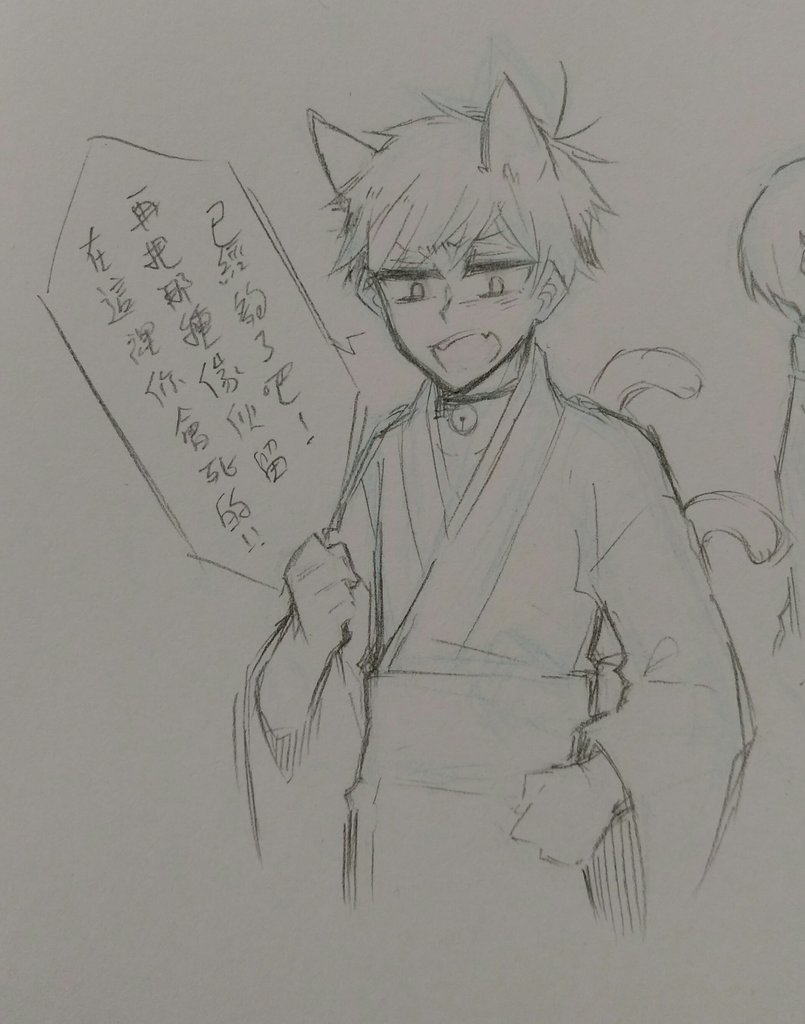 已經夠了吧！
再把那種傢伙留
在這裡你會死的!!